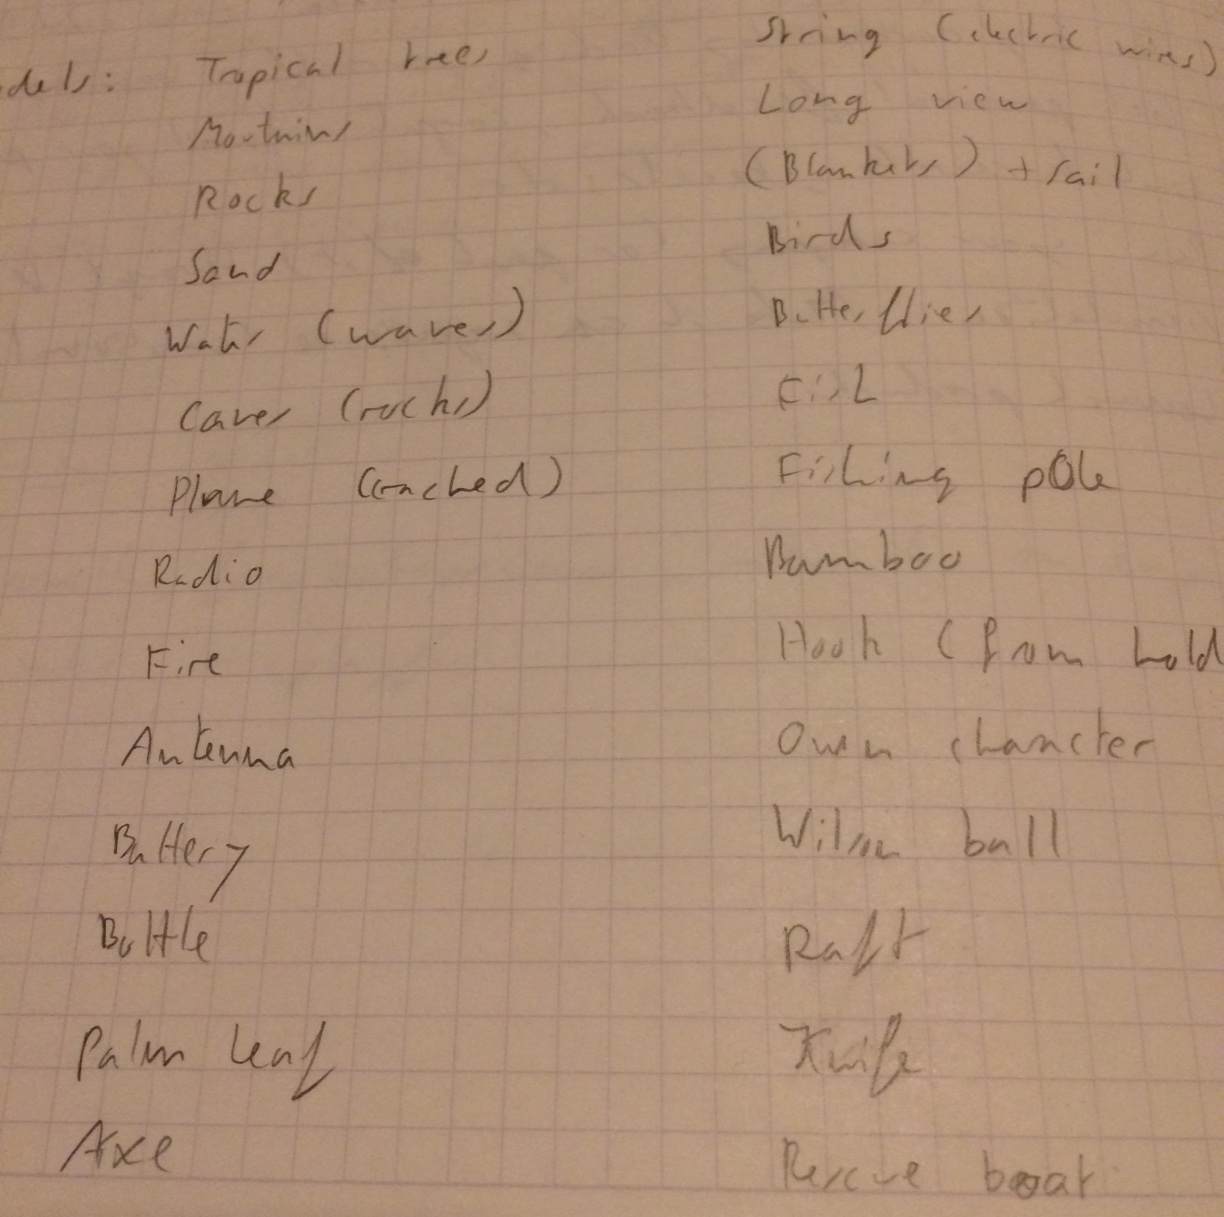 dels: Tropical trees
Mountains
Rocks
Sand
Water (waves)
Caves (rocks)
Plane (crached)
Radio
Fire
Antenna
Battery
Bottle
Palm leaf
Axe
String (electric wires)
Long view
(Blankets) + sail
Birds
Butterflies
Fish
Fishing pole
Bamboo
Hook (from hold
Own character
Wilson ball
Raft
Knife
Rescue boat